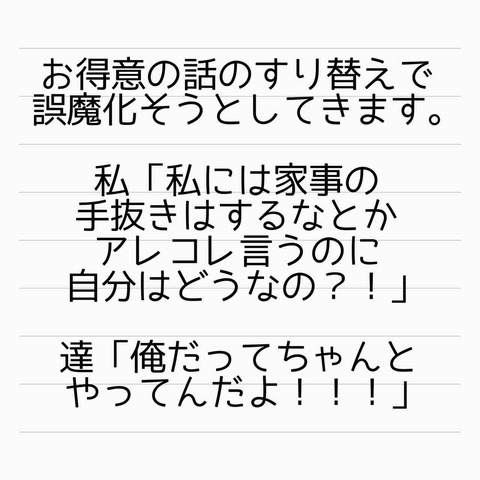 お得意の話のすり替えで
誤魔化そうとしてきます。
私「私には家事の
手抜きはするなとか
アレコレ言うのに
自分はどうなの？！」
達「俺だってちゃんと
やってんだよ！！！」